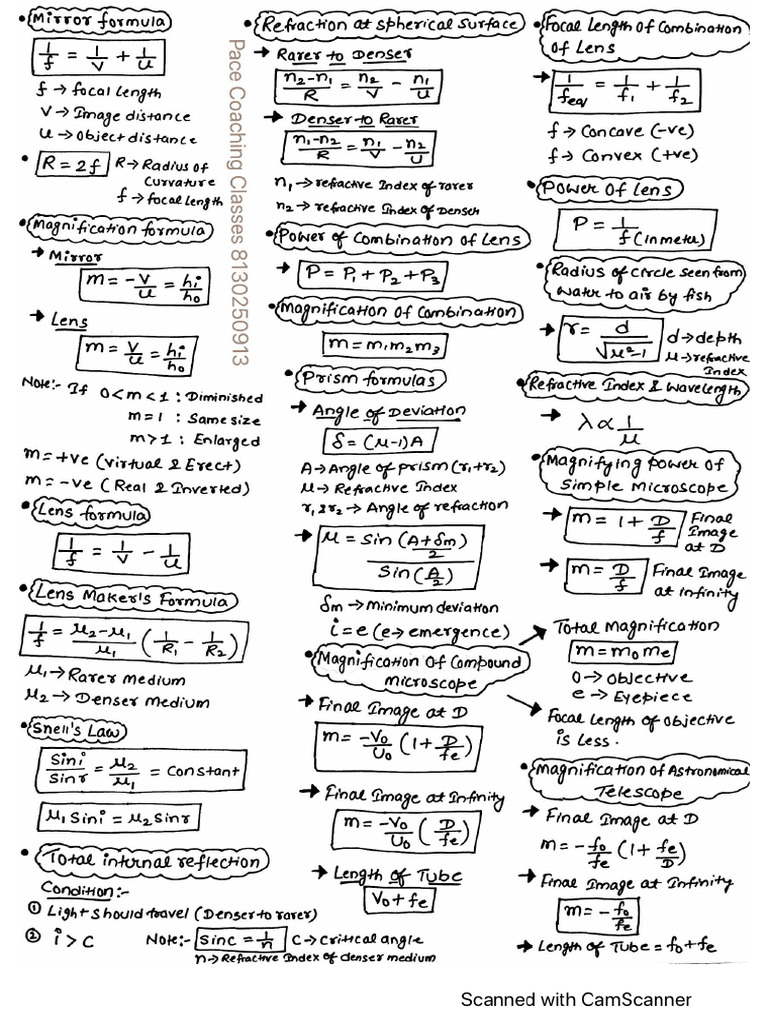 • Mirror formula
1/f = 1/v + 1/u
f → focal length
V → Image distance
u → Object distance
• R = 2f R → Radius of
Curvature
f → focal length
• Magnification formula
→ Mirror
m = -v/u = hi/ho
→ Lens
m = v/u = hi/ho
Note:- If 0<m<1 : Diminished
m=1 : Same size
m>1 : Enlarged
m = +ve (Virtual & Erect)
m = -ve (Real & Inverted)
• Lens formula
1/f = 1/v - 1/u
• Lens Maker's Formula
1/f = μ2-μ1/μ1 (1/R1 - 1/R2)
μ1 → Rarer medium
μ2 → Denser medium
• Snell's Law
sini/sinr = μ2/μ1 = Constant
μ1 sini = μ2 sinr
• Total internal reflection
Condition:-
① Light should travel (Denser to rarer)
② i > C Note:- sinc = 1/n C → Critical angle
n → Refractive Index of denser medium
Pace Coaching Classes 8130250913
• Refraction at Spherical Surface
→ Rarer to Denser
n2-n1/R = n2/V - n1/u
→ Denser to Rarer
n1-n2/R = n1/V - n2/u
n1 → refractive Index of rarer
n2 → refractive Index of Denser
• Power of Combination of Lens
→ P = P1 + P2 + P3
• Magnification of Combination
m = m1 m2 m3
• Prism formulas
→ Angle of Deviation
δ = (μ-1)A
A → Angle of prism (r1+r2)
μ → Refractive Index
r1 & r2 → Angle of refraction
→ μ = Sin (A+δm/2) / Sin (A/2)
δm → Minimum deviation
i = e (e → emergence)
• Magnification of Compound
microscope
→ Final Image at D
m = -Vo/Uo (1 + D/fe)
→ Final Image at Infinity
m = -Vo/Uo (D/fe)
→ Length of Tube
Vo + fe
• Focal Length of Combination
of Lens
→ 1/feqv = 1/f1 + 1/f2
f → Concave (-ve)
f → Convex (+ve)
• Power of Lens
P = 1/f (in meter)
• Radius of circle seen from
water to air by fish
→ r = d/√μ²-1 d → depth
μ → refractive
Index
• Refractive Index & Wavelength
→ λ ∝ 1/μ
• Magnifying power of
Simple Microscope
→ m = 1 + D/f Final
Image
at D
→ m = D/f Final Image
at infinity
Total Magnification
m = mo me
O → Objective
e → Eyepiece
Focal Length of Objective
is Less.
• Magnification of Astronomical
Telescope
→ Final Image at D
m = -fo/fe (1 + fe/D)
→ Final Image at Infinity
m = -fo/fe
→ Length of Tube = fo + fe
Scanned with CamScanner